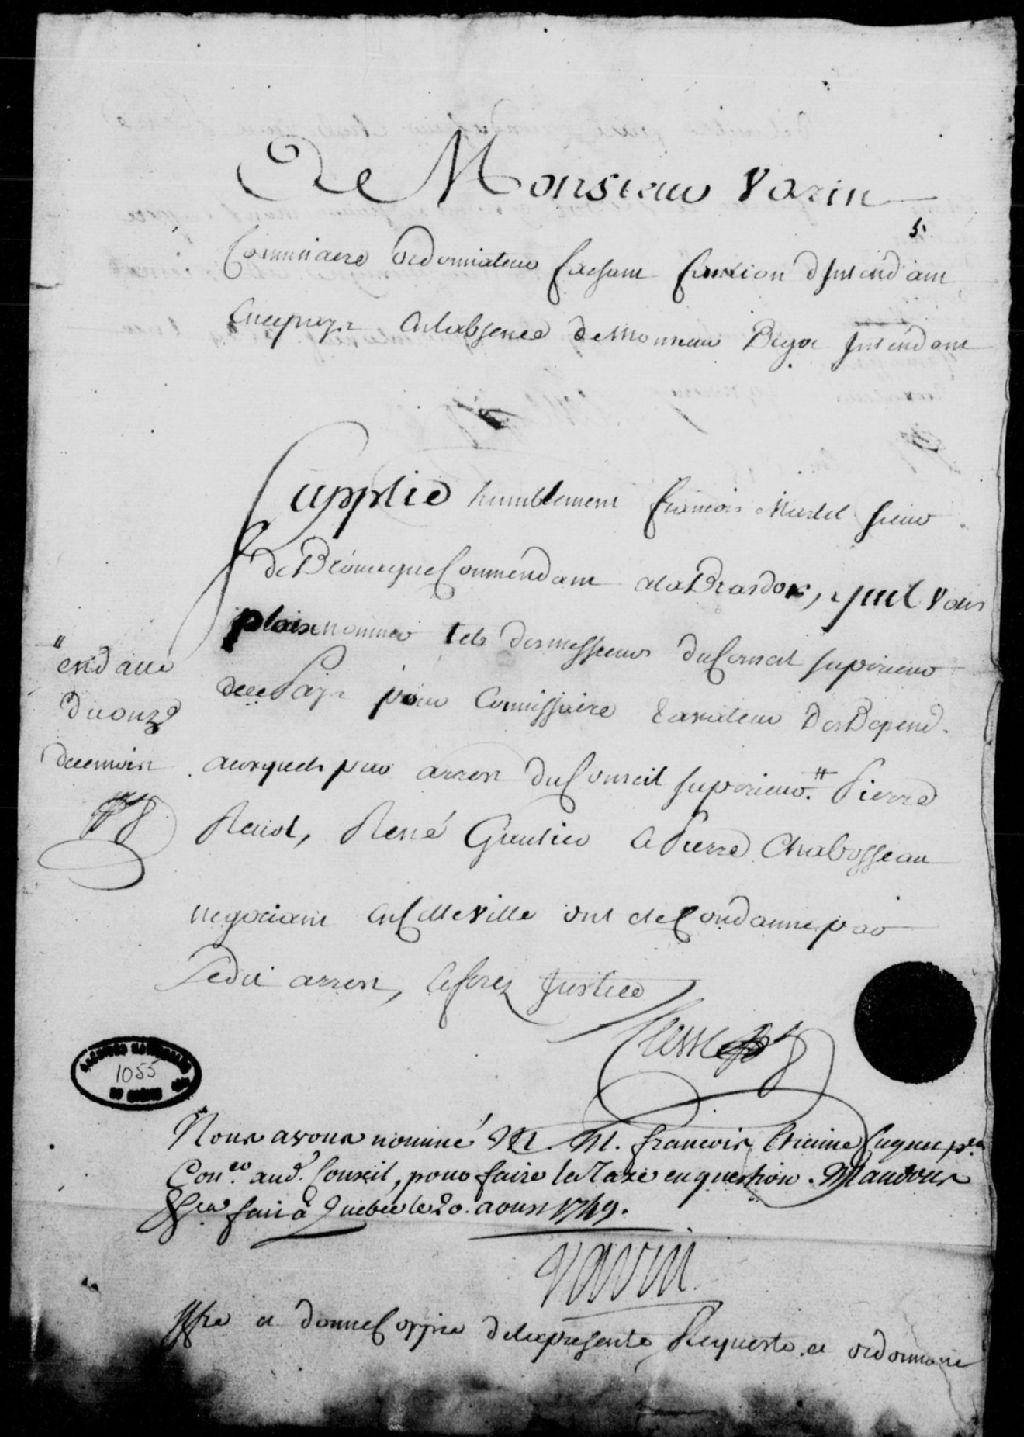 De Monsieur Varin
5
Commissaire ordonnateur faisant fonction d'Intendant
en ce pays en labsence de Monsieur Bigot Intendant
Supplie humblement François Martel sieur
de Brouague Commendant a la Brardor, quil Vous
plaise nommer tels des messieurs du Conseil superieur
de ce Pays pour Commissaire taxateur Des Depend.
auxquels par arrest du Conseil superieur # Pierre
# en datte
du onze
de ce mois
Revol, René Gautier & Pierre Chabosseau
negociant en cette ville ont ete Condamné par
ledit arrest, & ferez Justice
ARCHIVES NATIONALES
1055
DU QUEBEC
Nous avons nommé M. M. François Etienne Cugnet p.er
Con.er aud. Conseil, pour faire la Taxe en question. Mandons
&ca fait a Quebec le 20. aoust 1749.
Varin
&tre et donné Coppie de la presente Requeste, et ordonnance